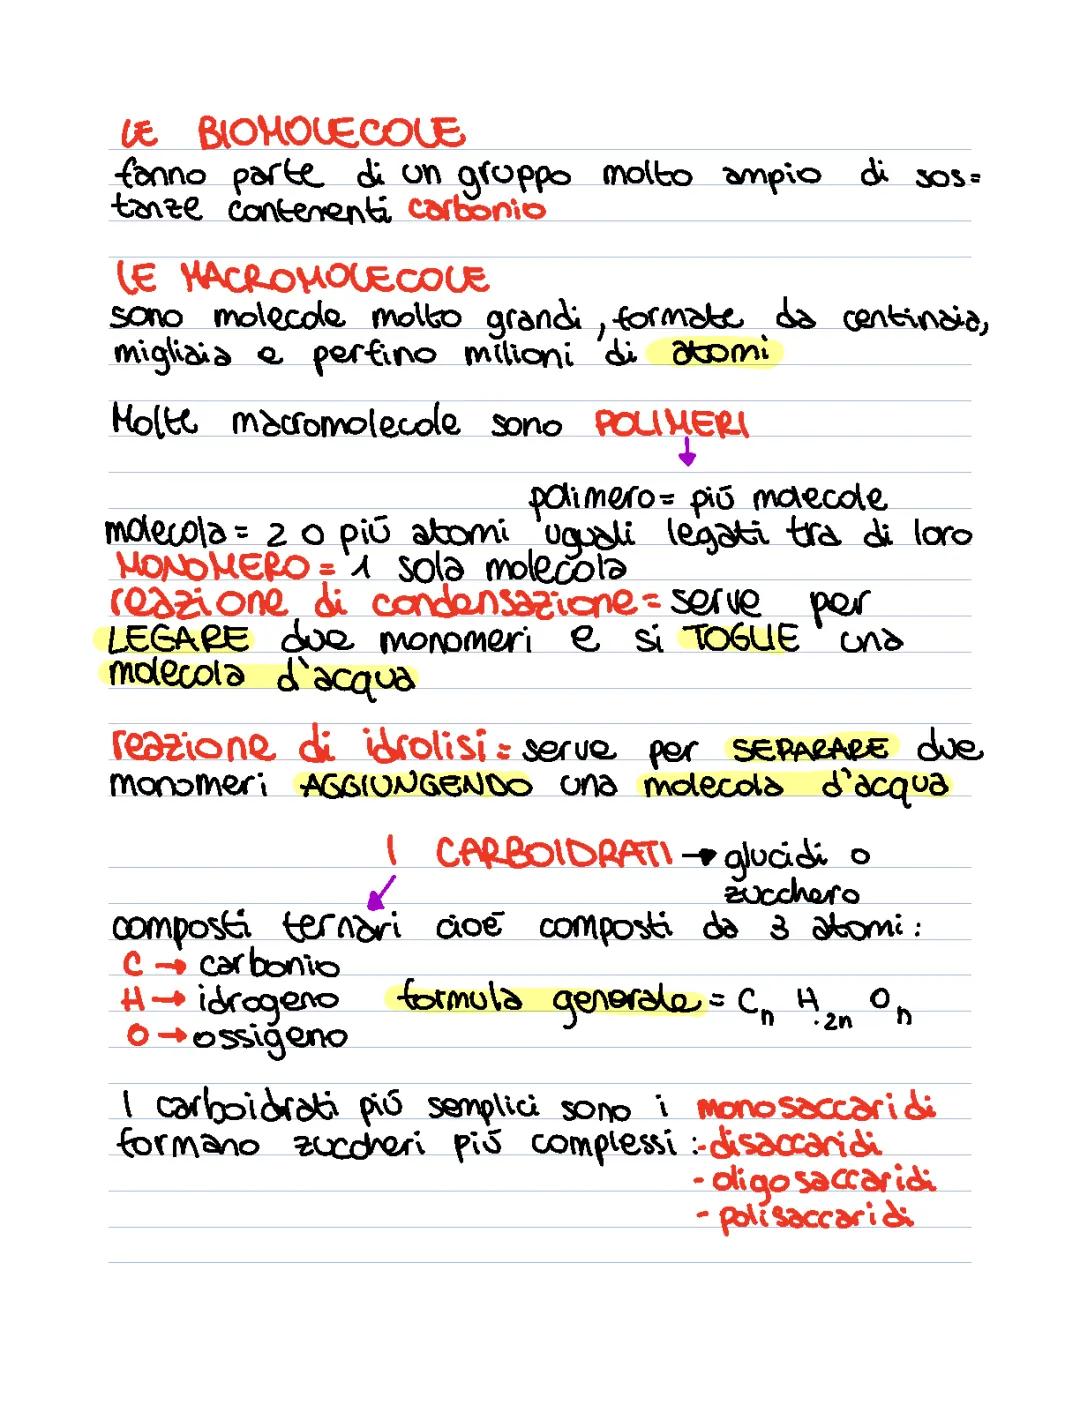 LE BIOMOLECOLE
fanno parte di un gruppo molto ampio di sos=
tanze contenenti carbonio
LE MACROMOLECOLE
sono molecole molto grandi, formate da centinaia,
migliaia e perfino milioni di atomi
Molte macromolecole sono POLIMERI
↓
polimero= più molecole
molecola = 2 o più atomi uguali legati tra di loro
MONOMERO = 1 sola molecola
reazione di condensazione= serve per
LEGARE due monomeri e si TOGLIE una
molecola d'acqua
reazione di idrolisi = serve per SEPARARE due
monomeri AGGIUNGENDO una molecola d'acqua
I CARBOIDRATI → glucidi o
zucchero
composti ternari cioè composti da 3 atomi:
C → carbonio
H → idrogeno formula generale = Cn H2n On
O → ossigeno
I carboidrati più semplici sono i monosaccaridi
formano zuccheri più complessi :-disaccaridi
- oligosaccaridi
- polisaccaridi